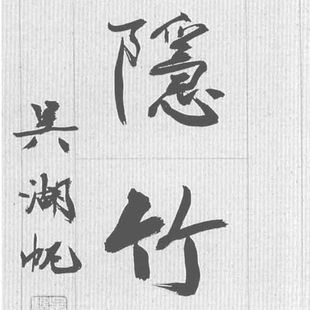 隱竹
吳湖帆